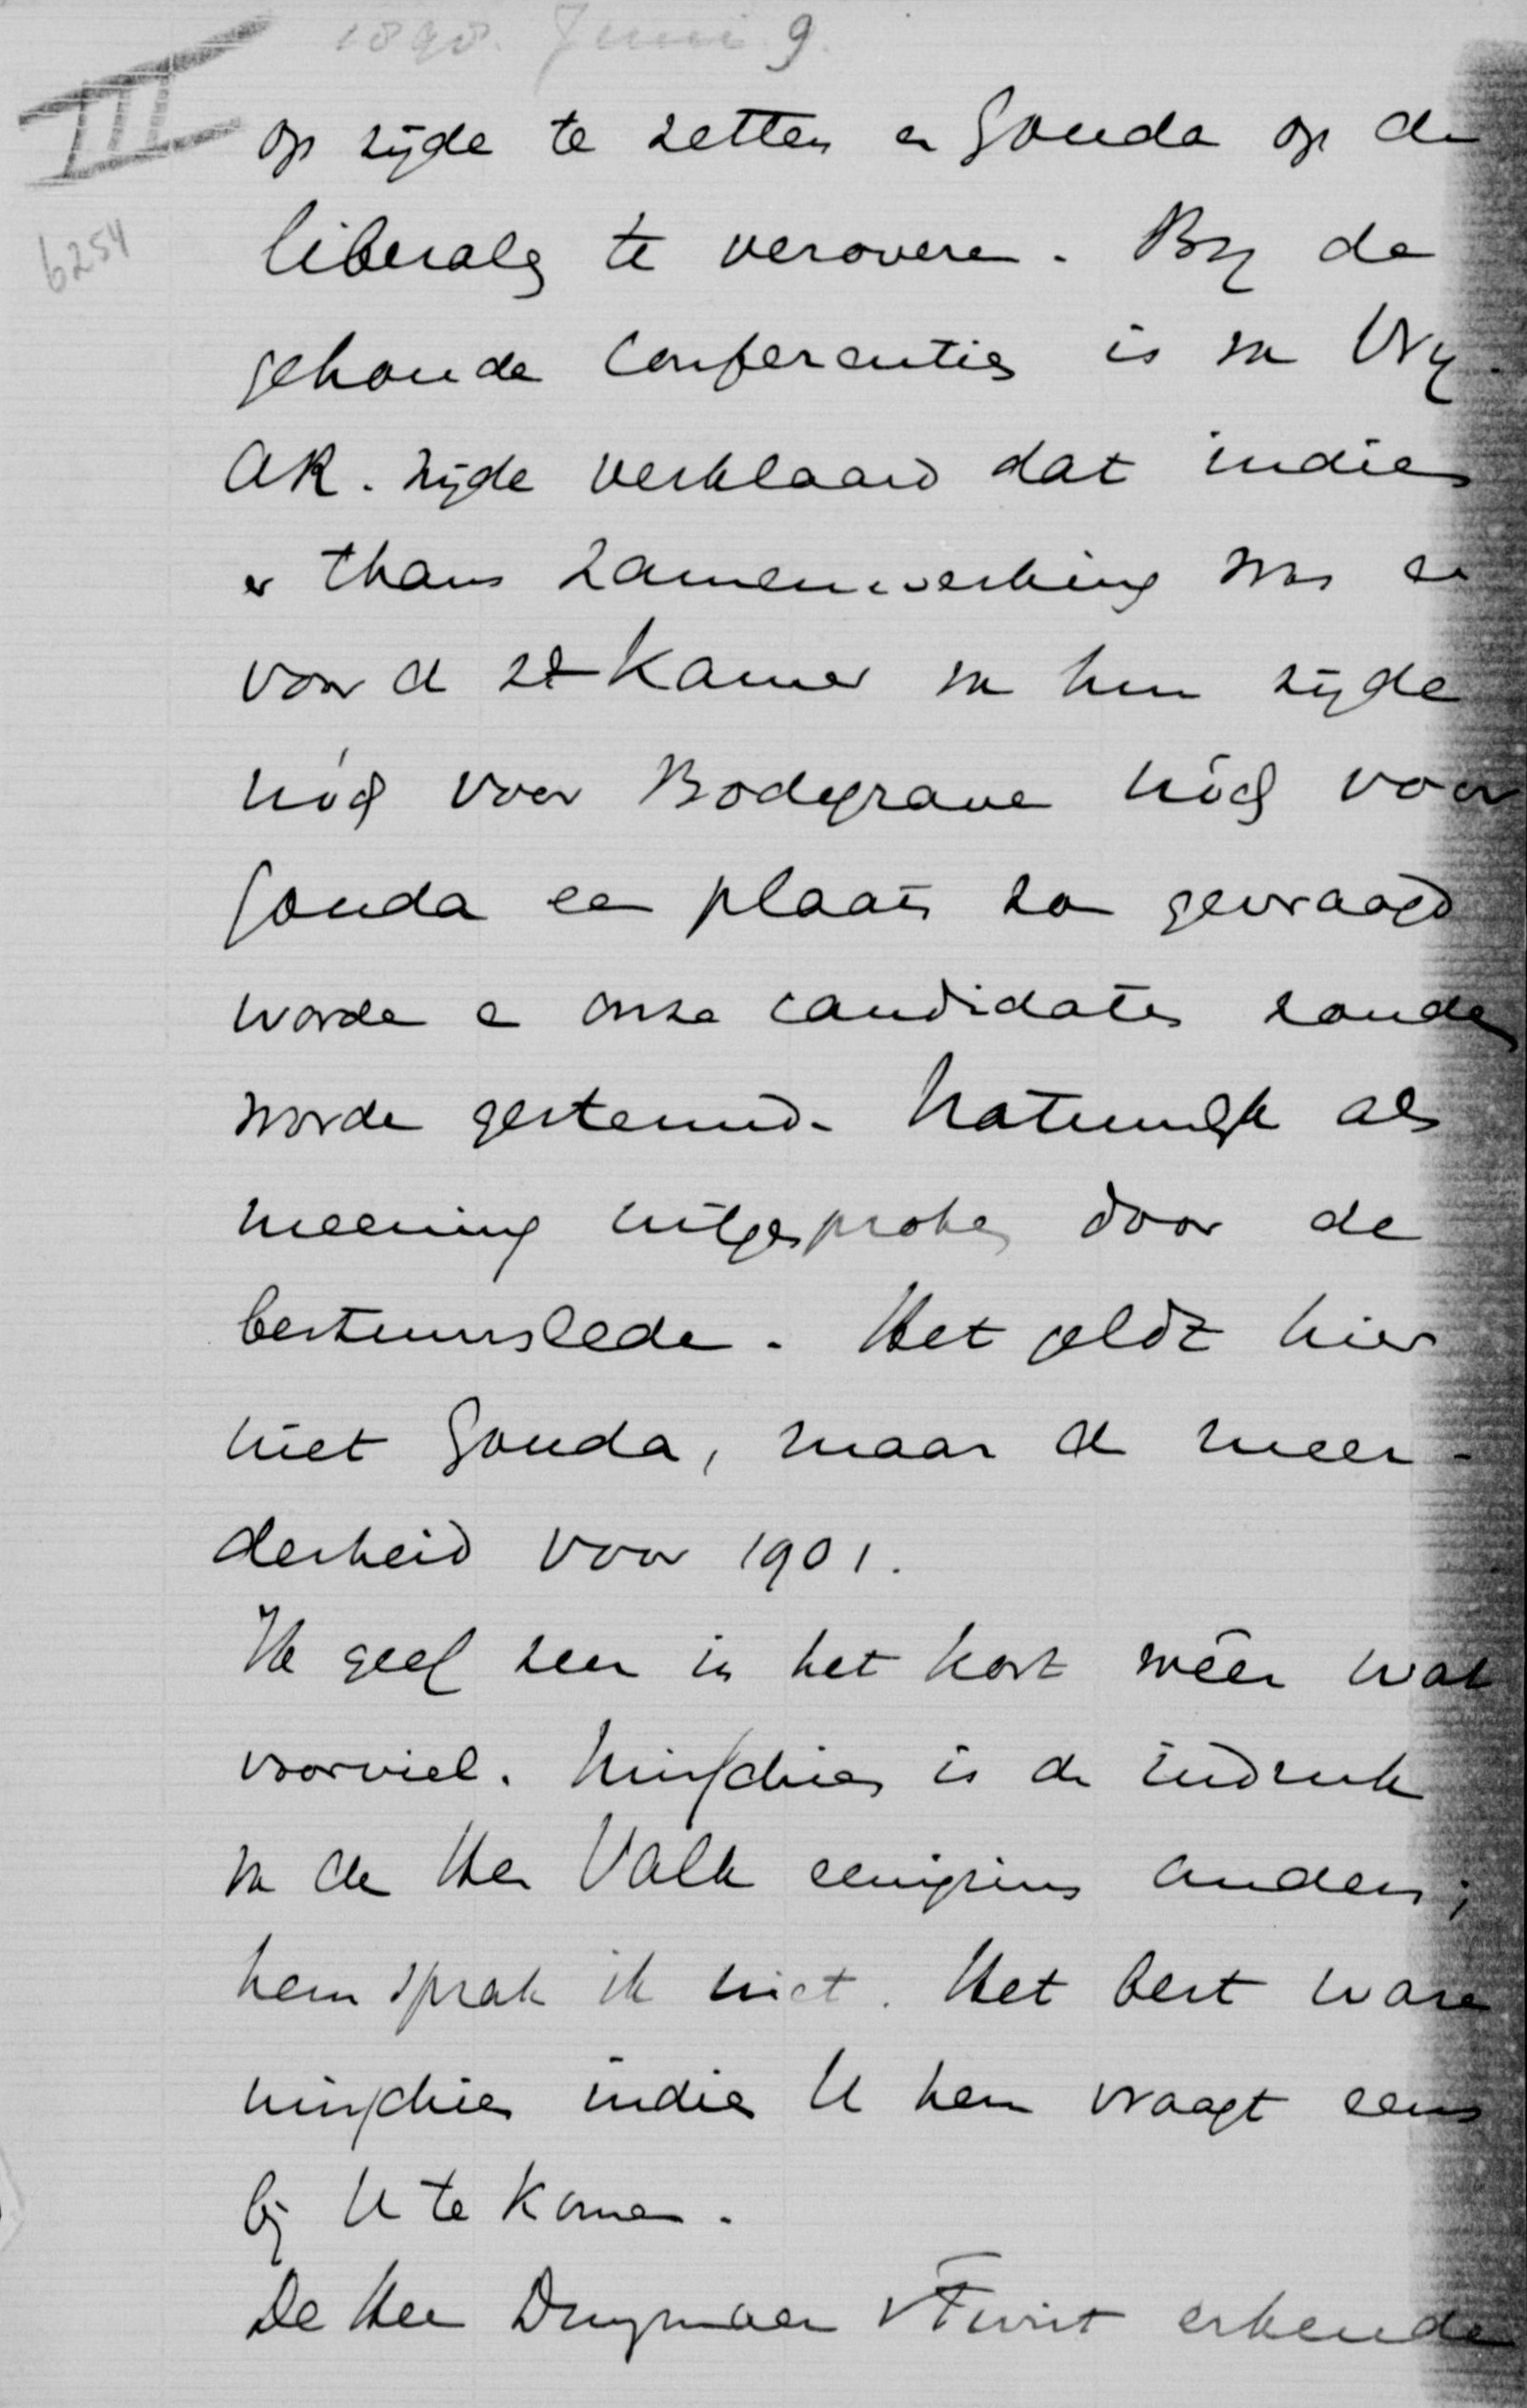 1898. Juni 9.
III
6254
op zijde te zetten en Gouda op de
liberalen te veroveren. Bij de
gehouden conferenties is van Vrij
AR. zijde verklaard dat indien
er thans zamenwerking was en
voor de 2e Kamer van hun zijde
nóg voor Bodegrave nóg voor
Gouda een plaats zou gevraagd
worden en onze candidaten zouden
worden gestemd. Natuurlijk als
meening uitgesproken door de
bestuursleden. Het geldt hier
niet Gouda, maar de meer-
derheid voor 1901.
Ik geef zeer in het kort wêer wat
voorviel. Misschien is de indruk
van den Heer Valk eenigzins anders;
hem sprak ik niet. Het best ware
misschien indien U hem vraagt eens
bij U te komen.
De Heer Duymaer v Twist erkende